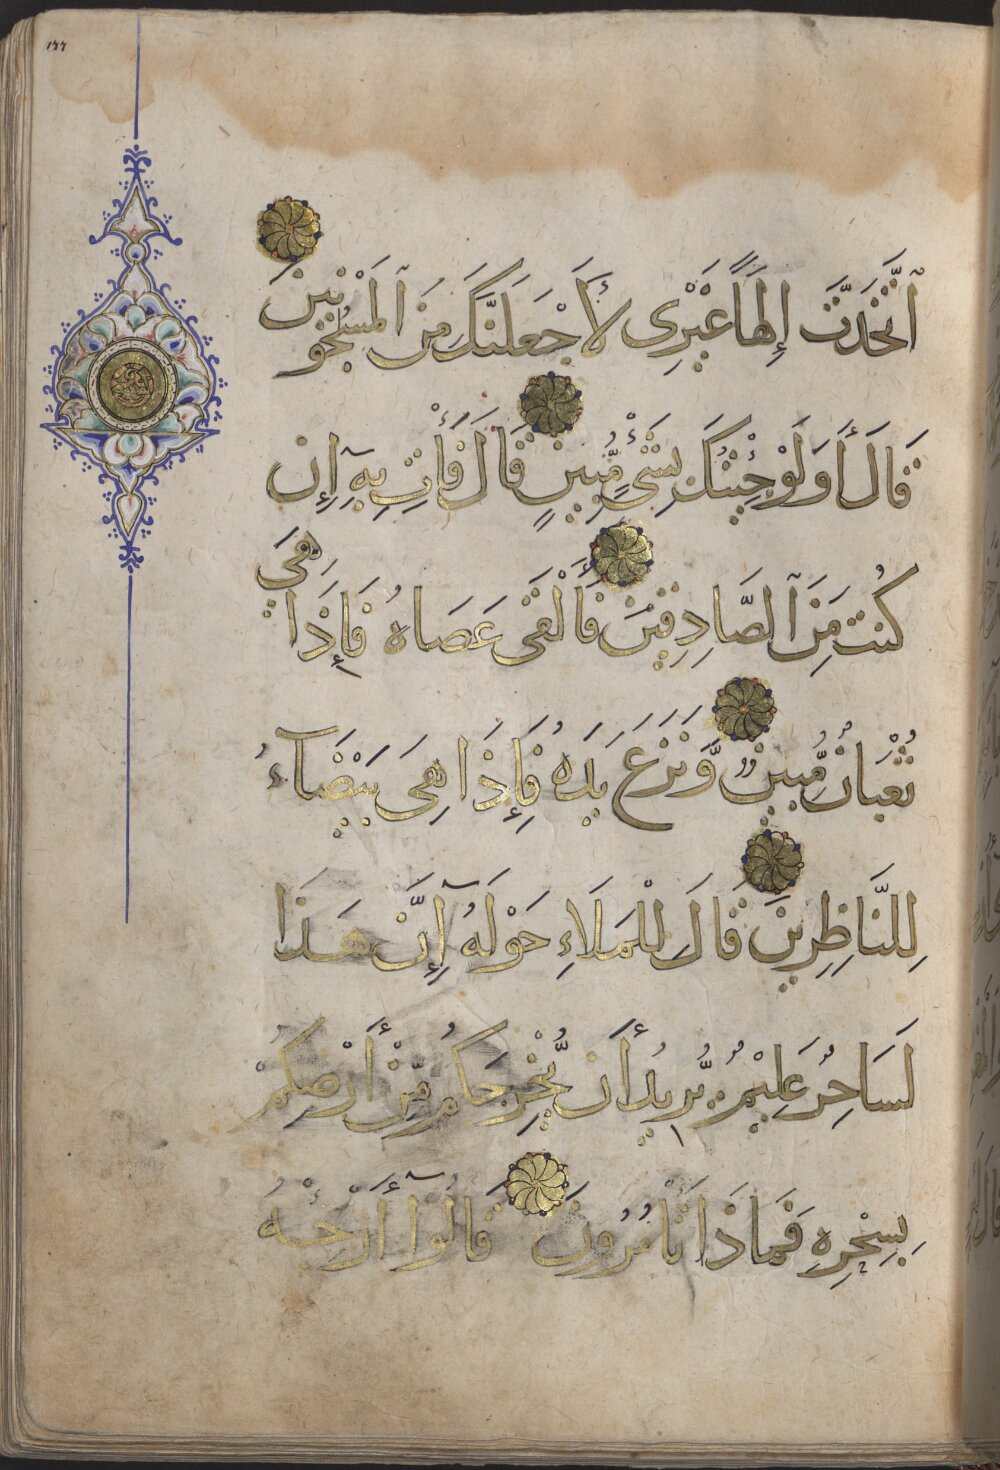 ١٢٢
ٱتَّخَذتَّ إِلَٰهًا غَيْرِى لَأَجْعَلَنَّكَ مِنَ ٱلْمَسْجُونِينَ
قَالَ أَوَلَوْ جِئْتُكَ بِشَىْءٍ مُّبِينٍ قَالَ فَأْتِ بِهِ إِن
كُنتَ مِنَ ٱلصَّادِقِينَ فَأَلْقَى عَصَاهُ فَإِذَا هِىَ
ثُعْبَانٌ مُّبِينٌ وَّنَزَعَ يَدَهُ فَإِذَا هِىَ بَيْضَآءُ
لِلنَّاظِرِينَ قَالَ لِلْمَلَإِ حَوْلَهُٓ إِنَّ هَذَا
لَسَاحِرٌ عَلِيمٌ يُّرِيدُ أَن يُّخْرِجَكُم مِّنْ أَرْضِكُمْ
بِسِحْرِهِ فَمَاذَا تَأْمُرُونَ قَالُوٓا أَرْجِهْ